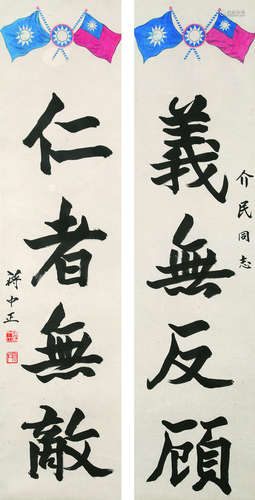 介民同志
義無反顧
仁者無敵
蔣中正